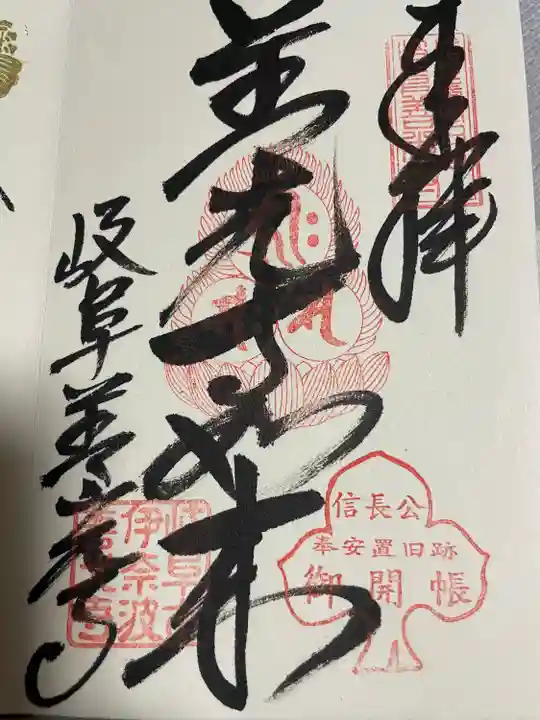 奉拝
善光寺如来
岐阜善光寺
信長公
奉安置旧跡
御開帳
伊奈波